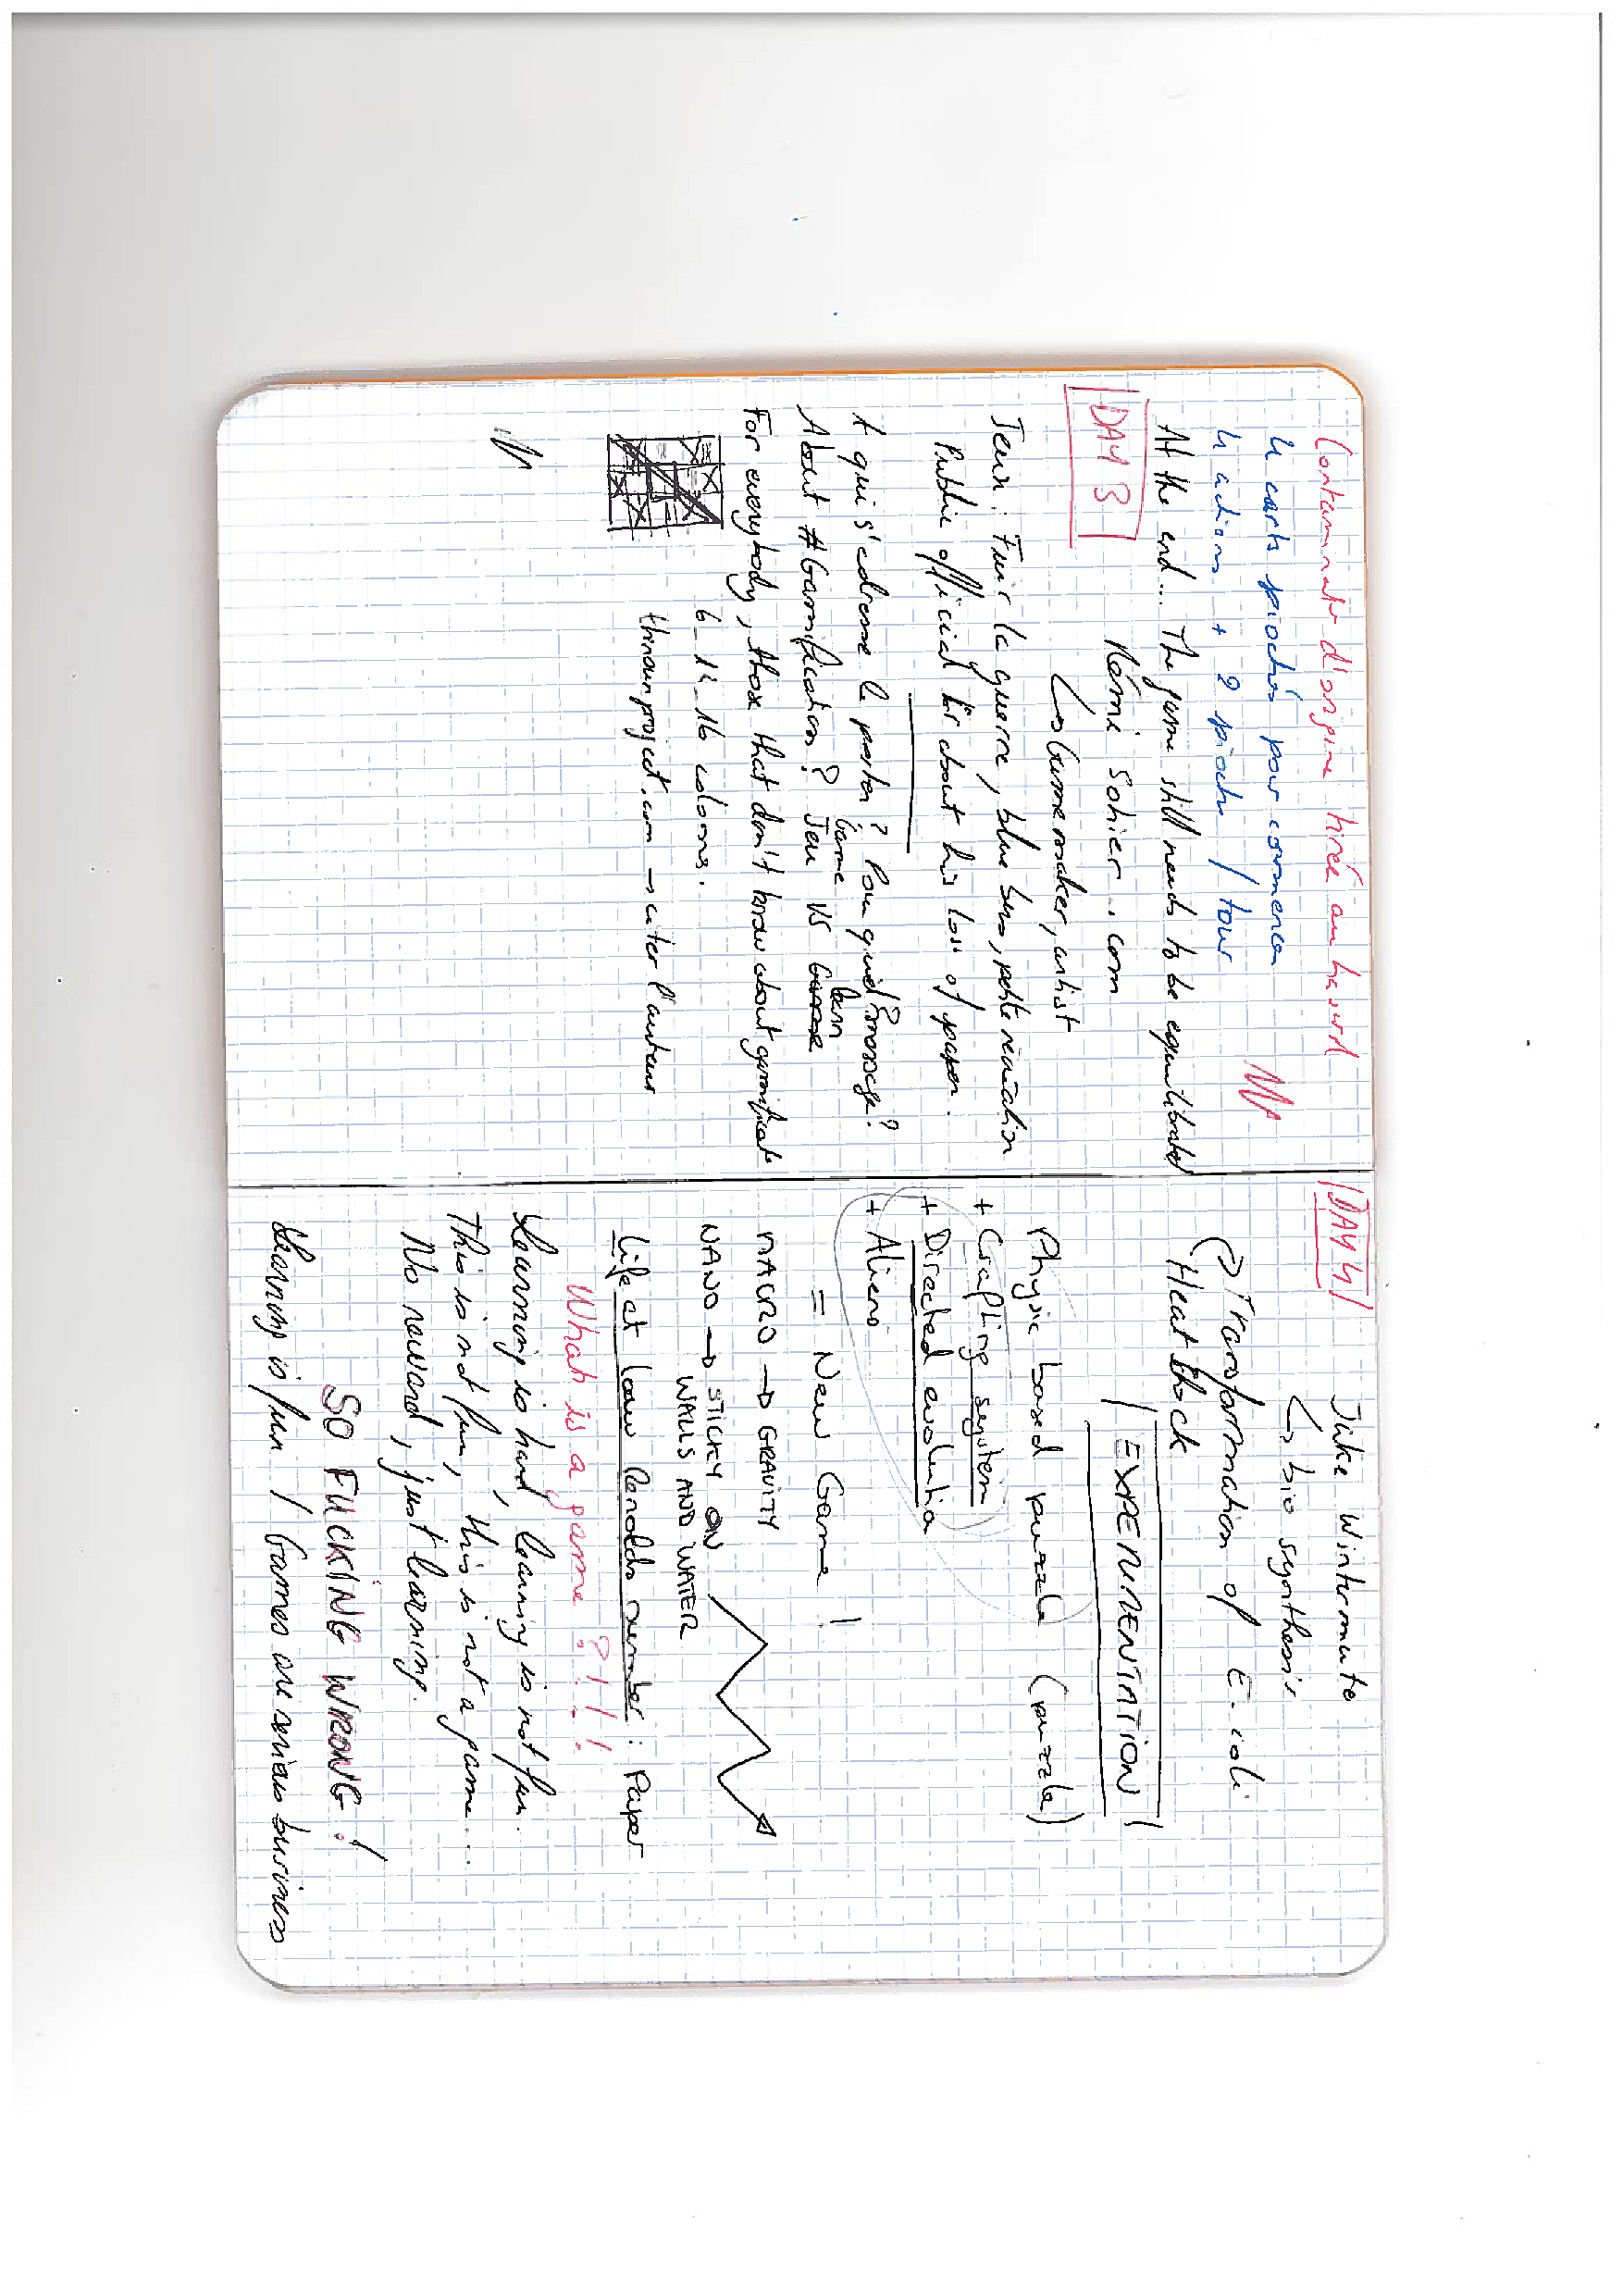 Contaminate d'origine tirée au hasard
4 carts piochés pour commencer
4 actions + 2 pioches / tour
At the end... The game still needs to be equilibrated
DAY 3
Rémi Sohier.com
↳ Game maker, artist
Jeux : Fuir la guerre, blue box, petite narration
Public official bis about his loss of paper.
A qui s'adresse le poster ? Pour quoi ? message ?
About #Gamification ? Jeu vs Game learn
For everybody, those that don't know about gamificate
6_14_16 colonnes.
thenounproject.com → citer l'auteur
DAY 4
Jake Wintermute
↳ bio synthesis
Transformation of E. coli
Heat Shock
EXPERIMENTATION
Physic based puzzle (puzzle)
+ Crafting system
+ Directed evolution
+ Aliens
= New Game !
MACRO → GRAVITY
NANO → STICKY ON
WALLS AND WATER
Life at low Renolds number : Paper
What is a game ?!!!
Learning is hard, learning is not fun.
This is not fun, this is not a game...
No reward, just learning.
SO FUCKING WRONG !
Learning is fun / Games are serious business